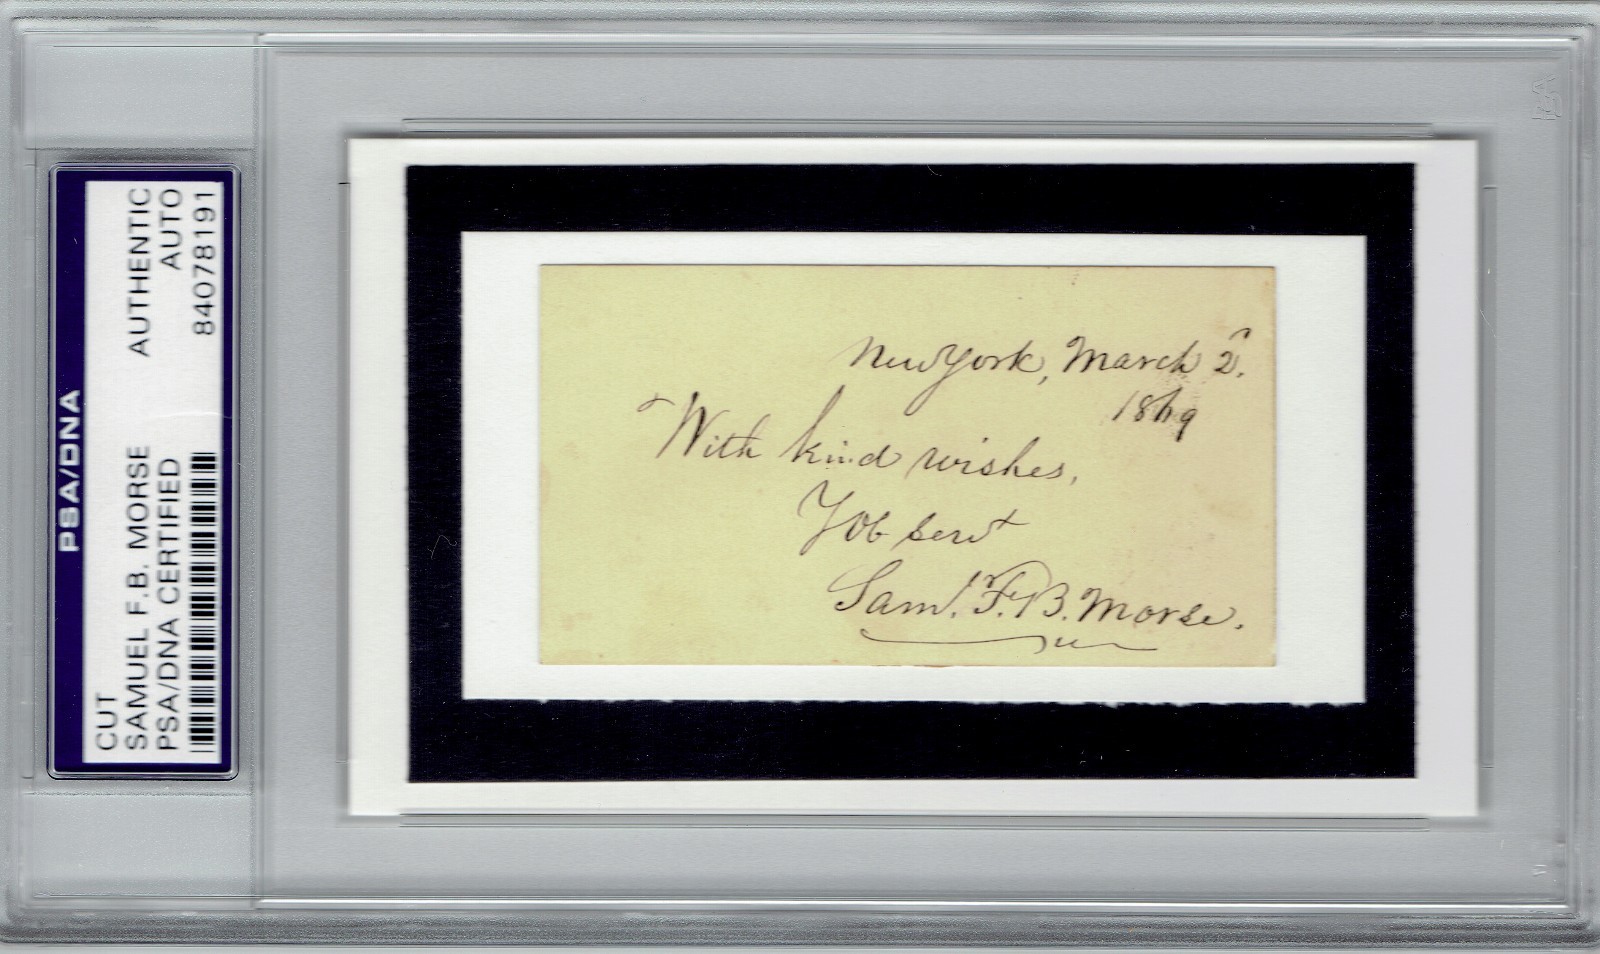 PSA/DNA
CUT AUTHENTIC
SAMUEL F.B. MORSE AUTO
PSA/DNA CERTIFIED 84078191
New York, March 2.
1869
With kind wishes,
Y ob servt
Saml. F. B. Morse.